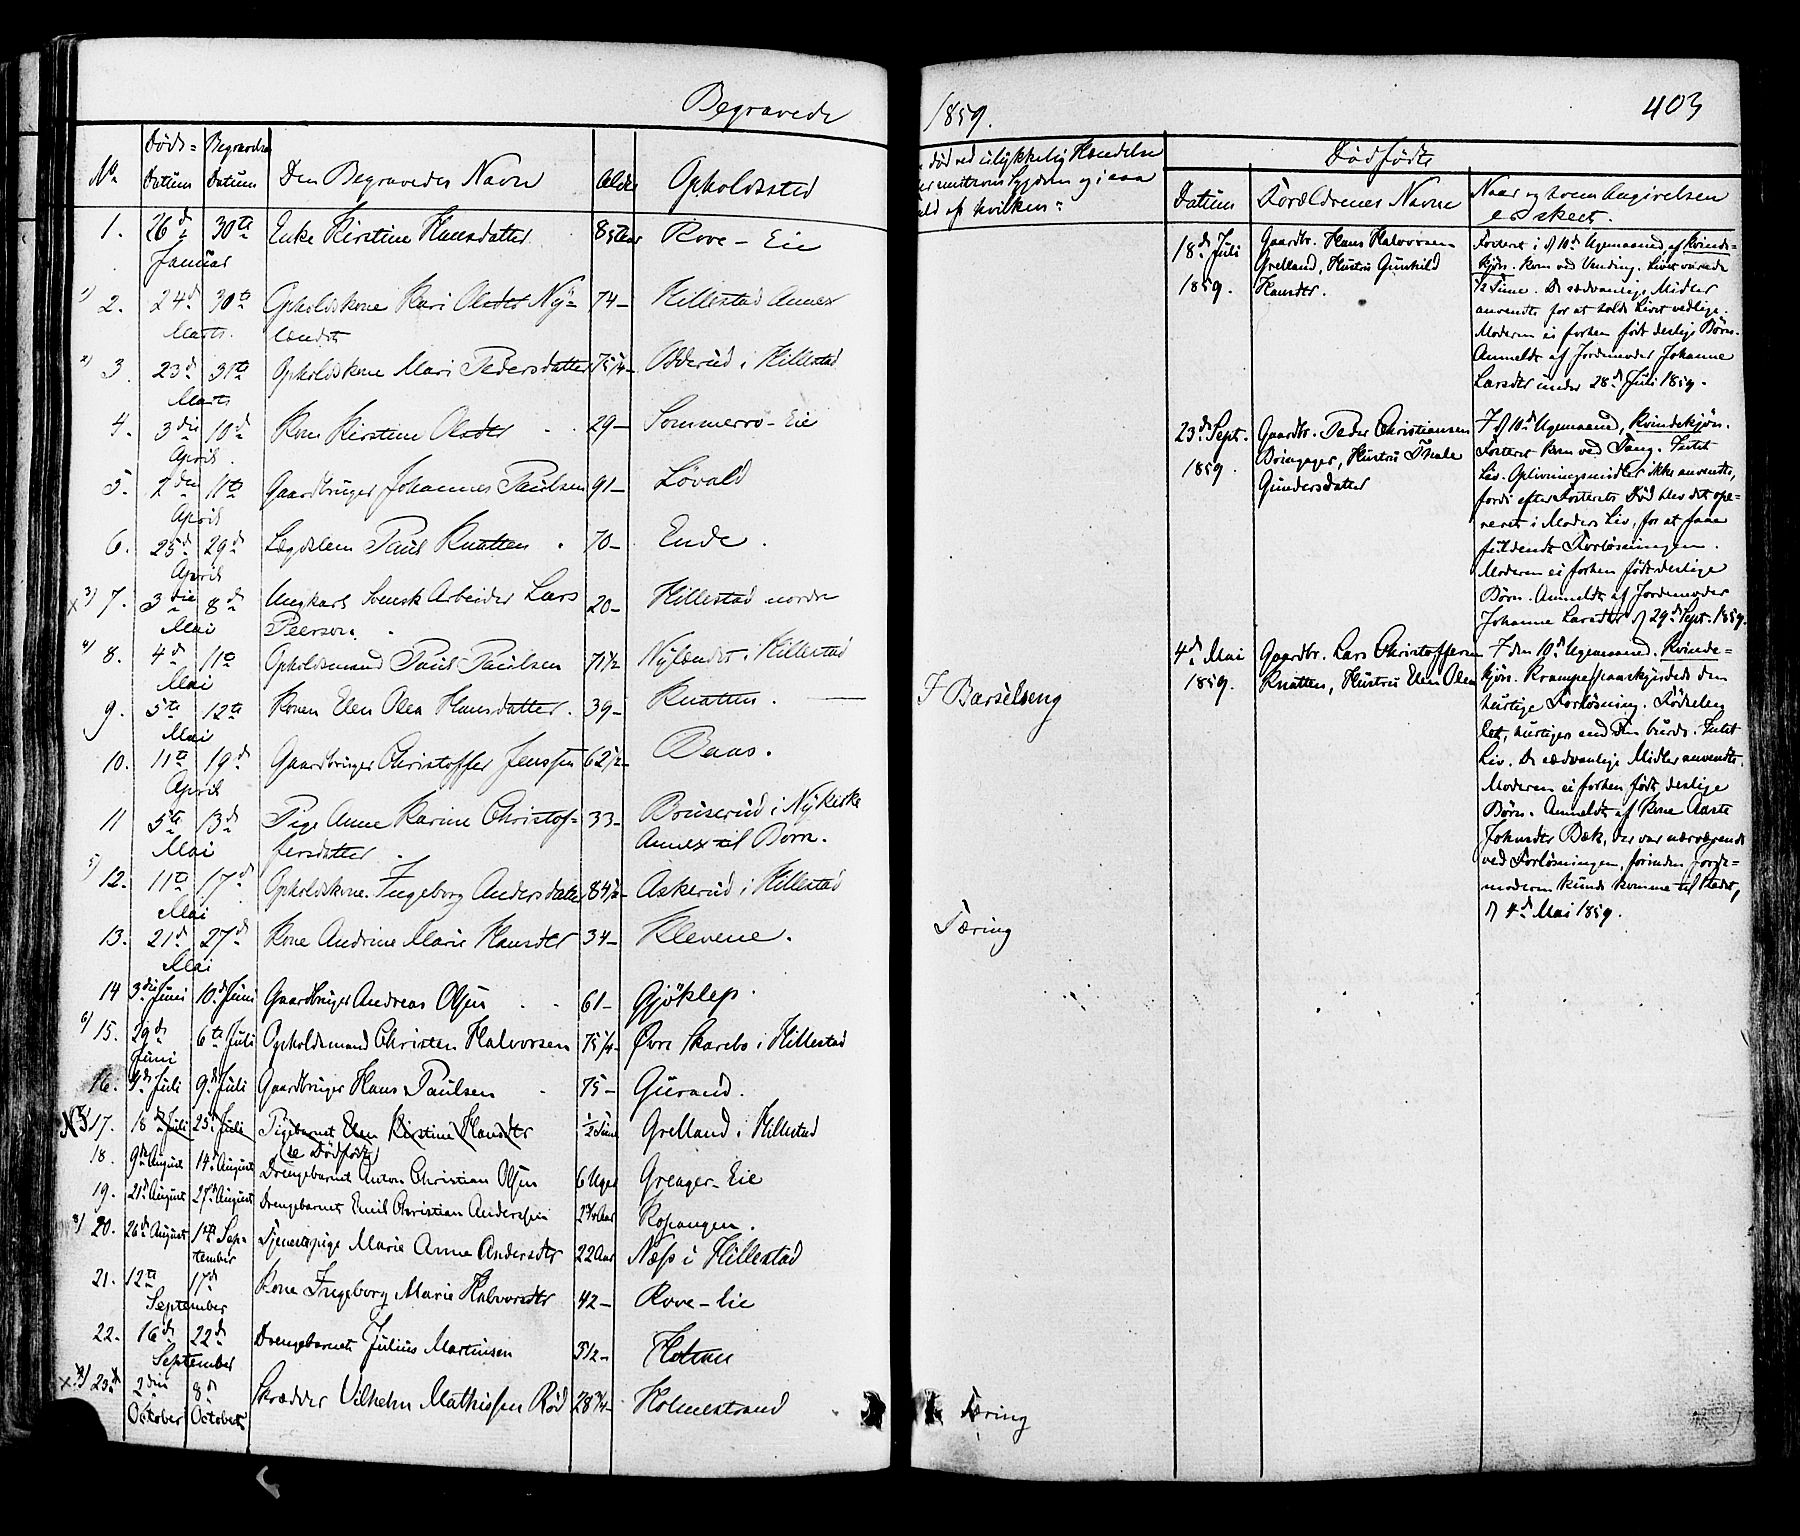 Begravede
1859.
403
No.
Døds-
Datum
Begravelses
Datum
Den Begravedes Navn
Alder
Opholdssted
død ved ulykkelig Hændelse
Dødfødte
Datum
Forældrenes Navne
Naar og hvem Angivelsen
er skeet.
1. 26d Januar 30te Enke Kirstine Hansdatter 85 Aar Rove-Eie
1) 2. 24d Marts 30te Opholdskone Kari Olsdtr Ny-
landet 74- Hillestad Annex
2) 3. 23d Marts 31te Opholdskone Mari Pedersdatter 75 1/4- Odderud i Hillestad
4. 3die April 10d Kone Kirstine Olsdtr 29- Sommerro-Eie
5. 7den April 11te Gaardbruger Johannes Paulsen 91- Løvald
6. 25d April 29d Lægdslem Paul Knatten 70- Ende.
x 3) 7. 3die Mai 8d Ungkarl Svensk Arbeider Lars
Peerson. 20- Hillestad nordre
4) 8. 4d Mai 11te Opholdsmand Paul Paulsen 71 1/2 Nylandet i Hillestad
9. 5te Mai 12te Konen Elen Olea Hansdatter. 39- Knatten. I Barselseng
10. 11te April 19d Gaardbruger Christoffer Jenssen 62 1/2- Baas.
11 5te Mai 13d Pige Anne Karine Christof-
fersdatter. 33- Bruserud i Nykirke
Annex til Borre.
5) 12. 11te Mai 17d Opholdskone Ingeborg Andersdatter 84 1/2- Askerud i Hillestad
13. 21d Mai 27d Kone Andrine Marie Hansdtr 34- Klevene. Tæring
14 3die Juni 10d Juni Gaardbruger Andreas Olsen 61- Gjøklep.
6) 15. 29d Juni 6te Juli Opholdsmand Christen Halvorsen 75 1/4- Øvre Skarebo i Hillestad
16. 4d Juli 9d Juli Gaardbruger Hans Paulsen 75- Gurand.
17. 18d Juli 25d Juli Pigebarnet Elen Kirstine Hansdtr 1/2 Time Grelland i Hillestad
(se Dødfødte)
18. 9d August 14d August Drengebarnet Anton Christian Olsen 6 Uger Greager-Eie
19. 21d August 27d August Drengebarnet Emil Christian Anderssen 2 3/4 Aar Kopangen.
8) 20. 26d August 1te Sep-
tember Tjenestepige Marie Anne Andersdtr 22 Aar Næss i Hillestad
21. 12te 17d September Kone Ingeborg Marie Halvorsdtr 42- Rove-Eie
22. 16d 22d September Drengebarnet Julius Martinsen 3 1/2- Holman
x 9) 23. 2den October 8d October Skrædder Vilhelm Mathissen Rød 28 3/4- Holmestrand Tæring
18d Juli
1859.
Gaardbr. Hans Halvorsen
Grelland, Hustru Gunhild
Hansdtr.
Fosteret i d 10d Ugemaaned, af Kvinde-
kjøn. Kom ved Vending. Livet varede
1/2 Time. De sædvanlige Midler
anvendte for at holde Livet vedlige.
Moderen ei forhen født deslige Børn.
Anmeldt af Jordemoder Johanne
Larsdtr under 28d Juli 1859.
23d Sept.
1859.
Gaardbr. Peder Christiansen
Hustru Thale
Gundersdatter
I d 10d Ugemaaned, Kvindekjøn.
Fosteret kom ved Tang. Intet
Liv. Oplivningsmidler ikke anvendte,
fordi efter Fosterets Død blev det ope-
reret i Moders Liv, for at faae
fuldendt Forløsningen.
Moderen ei forhen født deslige
Børn. Anmeldt af Jordemoder
Johanne Larsdtr d 29d Sept. 1859.
4d Mai
1859.
Gaardbr. Lars Christoffersen
Knatten, Hustru Elen Olea
I den 10d Ugemaaned. Kvinde-
kjøn. Krampe paaskyndede den
hurtige Forløsning. Fødselen
let, hurtigere end den burde. Intet
Liv. De sædvanlige Midler anvendte.
Moderen ei forhen født deslige
Børn. Anmeldt af Kone Aaste
Johnsdtr Bæk, der var nærværende
ved Forløsningen, forinden Jorde-
moderen kunde komme til Stedet,
d 4d Mai 1859.